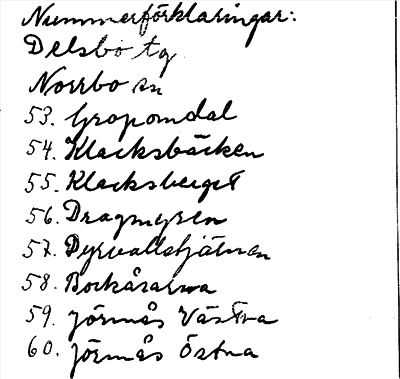 Nummerförklaringar:
Delsbo tg
Norrbo sn
53. Gropomdal
54. Klacksbäcken
55. Klacksberget
56. Dragmyren
57. Dyrvallstjärnen
58. Bockåsarna
59. Jörmås Västra
60. Jörmås Östra